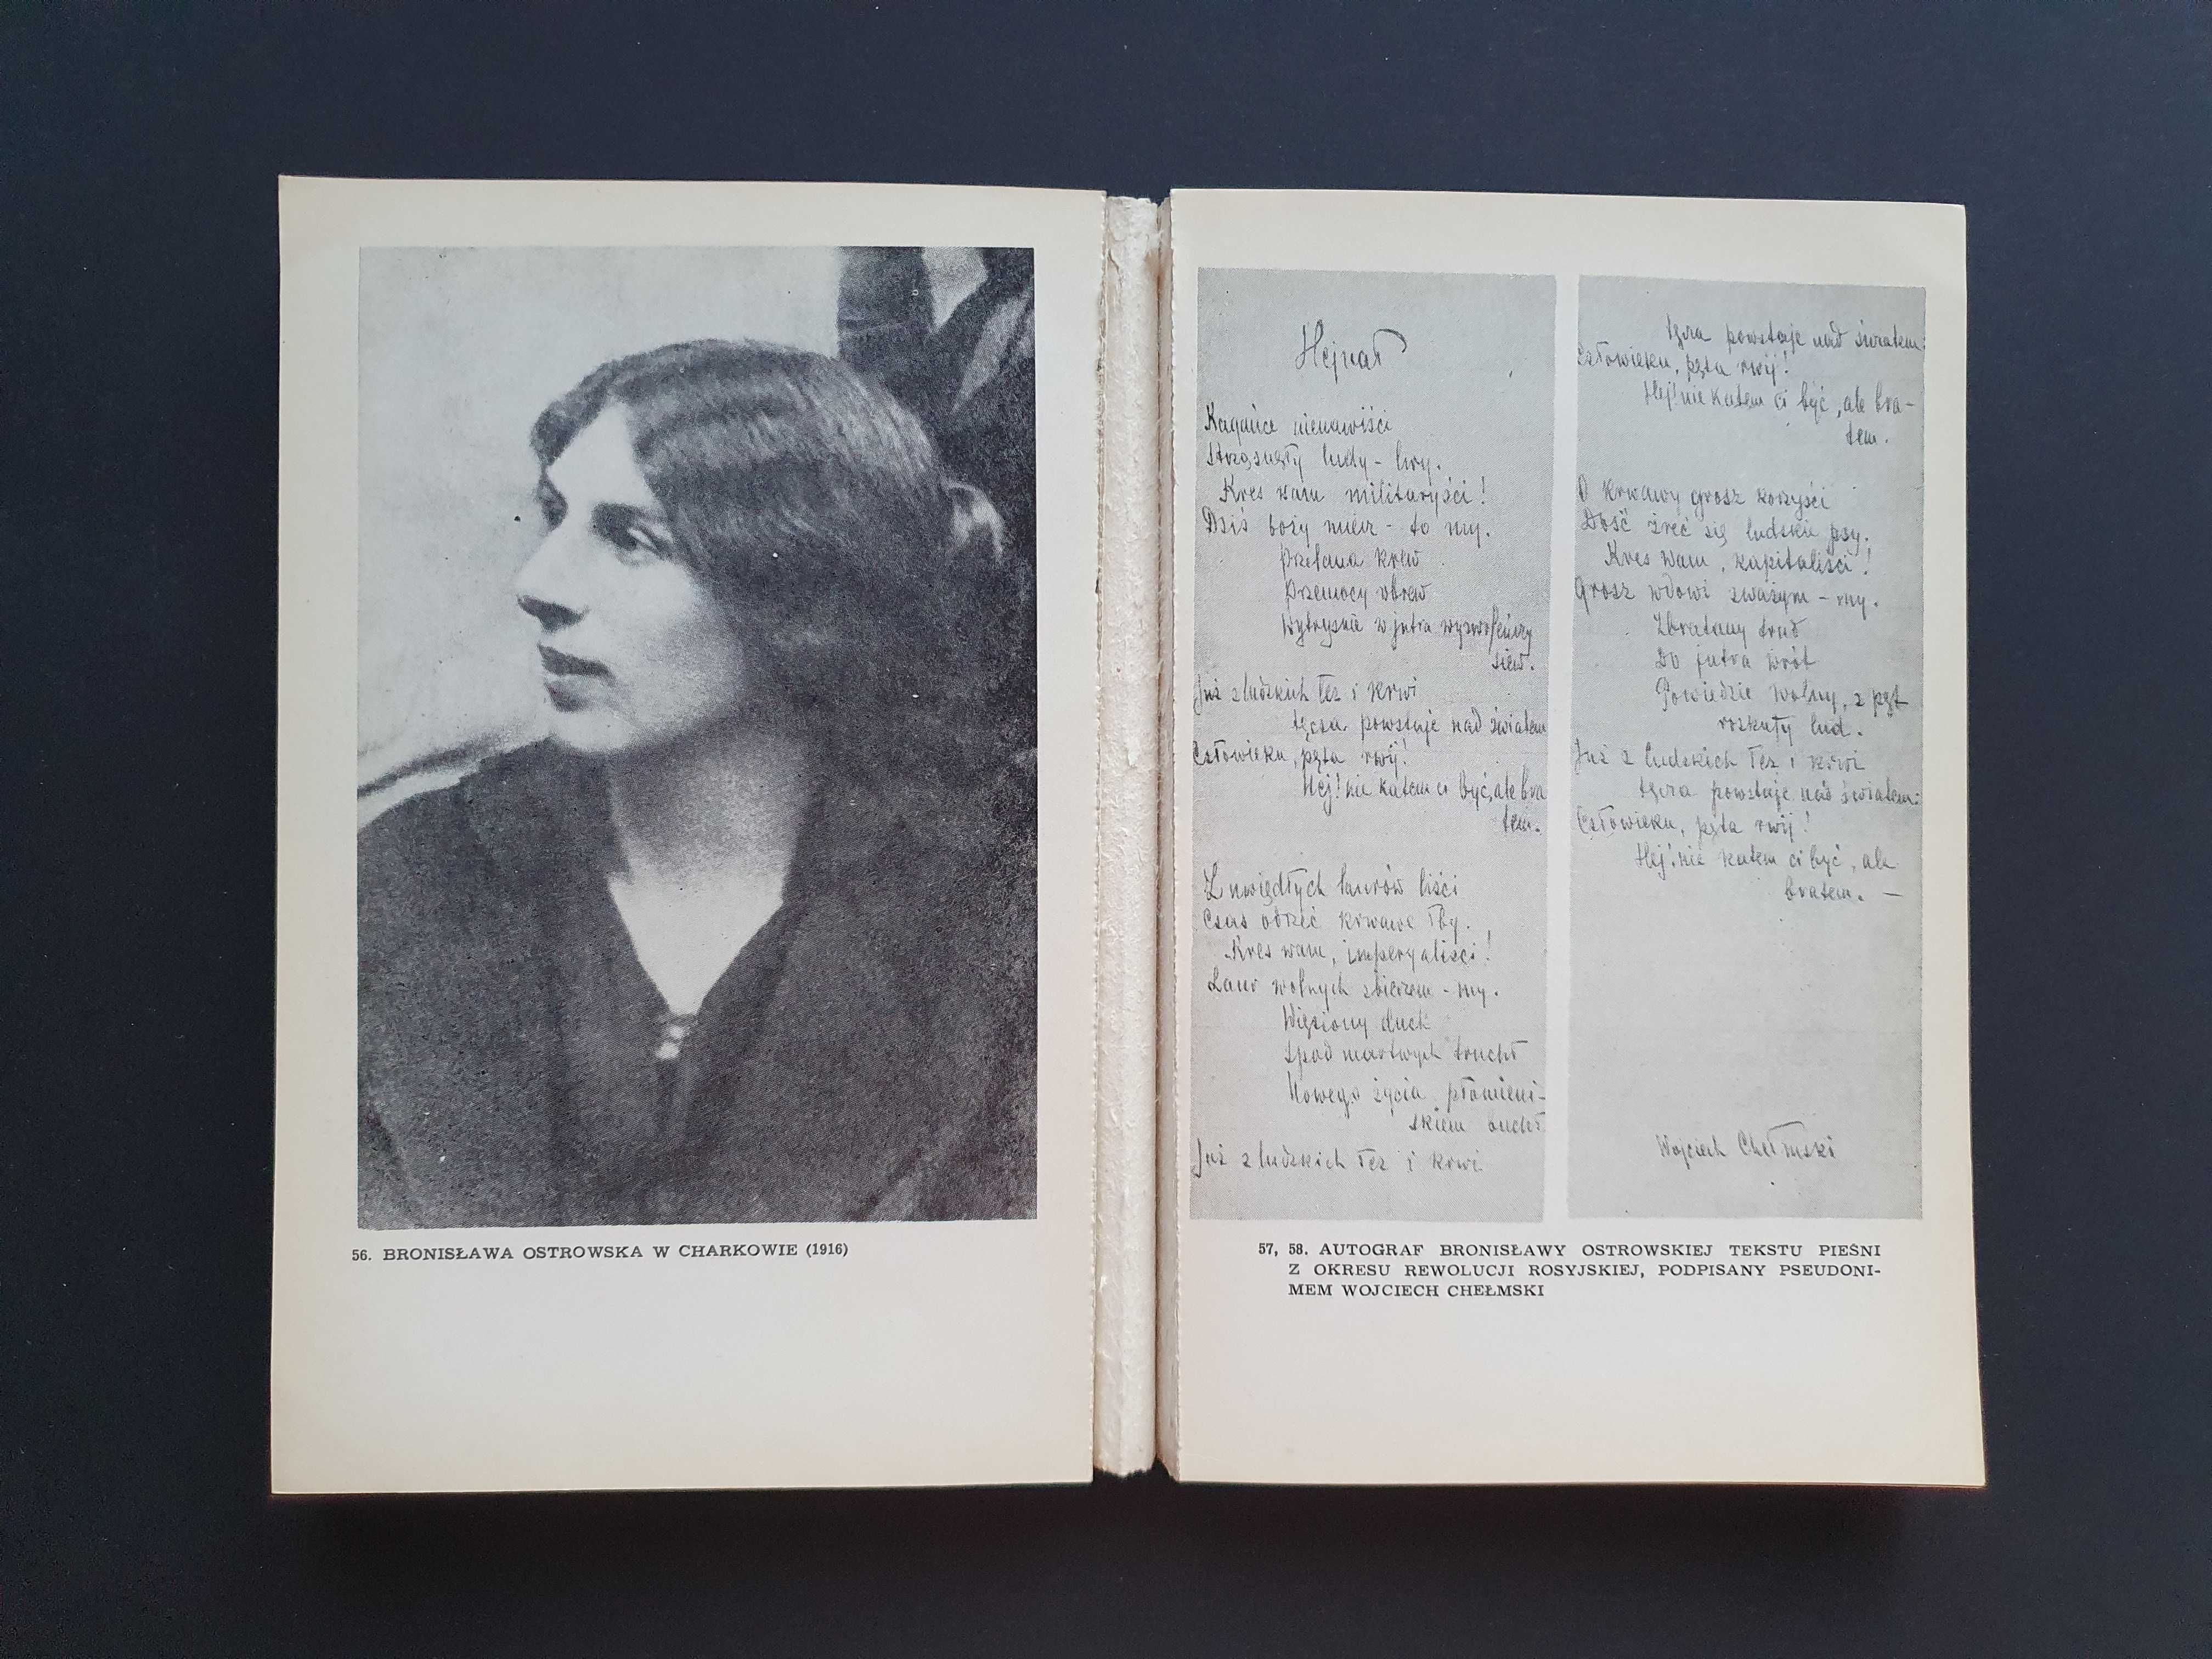 56. BRONISŁAWA OSTROWSKA W CHARKOWIE (1916)
Hejnał
Kagańce nienawiści
Strząsnęły ludy - lwy.
Kres wam militaryści!
Dziś boży miecz - to my.
Przelana krew
Przemocy wbrew
Wytryśnie w jutra wyzwoleńczy
siew.
Już z ludzkich łez i krwi
tęcza powstaje nad światem
Człowieku, pęta rwij!
Hej! nie katem ci być, ale bra
tem.
Z uwiędłych laurów liści
Czas obrzeć krwawe łby.
Kres wam, imperyaliści!
Laur wolnych zbierzem - my.
Więziony duch
Spod martwych
Nowego życia płomieni-
skiem
Już z ludzkich łez i krwi
tęcza powstaje nad światem:
Człowieku, pęta rwij!
Hej! nie katem ci być, ale bra-
tem.
O krwawy grosz korzyści
Dość żreć się ludzkie psy.
Kres wam, kapitaliści!
Grosz wdowi zważym - my.
Zbratany trud
Do jutra wrót
Powiedzie wolny, z pęt
rozkuty lud.
Już z ludzkich łez i krwi
tęcza powstaje nad światem:
Człowieku, pęta rwij!
Hej! nie katem ci być, ale
bratem. —
Wojciech Chełmski
57, 58. AUTOGRAF BRONISŁAWY OSTROWSKIEJ TEKSTU PIEŚNI
Z OKRESU REWOLUCJI ROSYJSKIEJ, PODPISANY PSEUDONI-
MEM WOJCIECH CHEŁMSKI